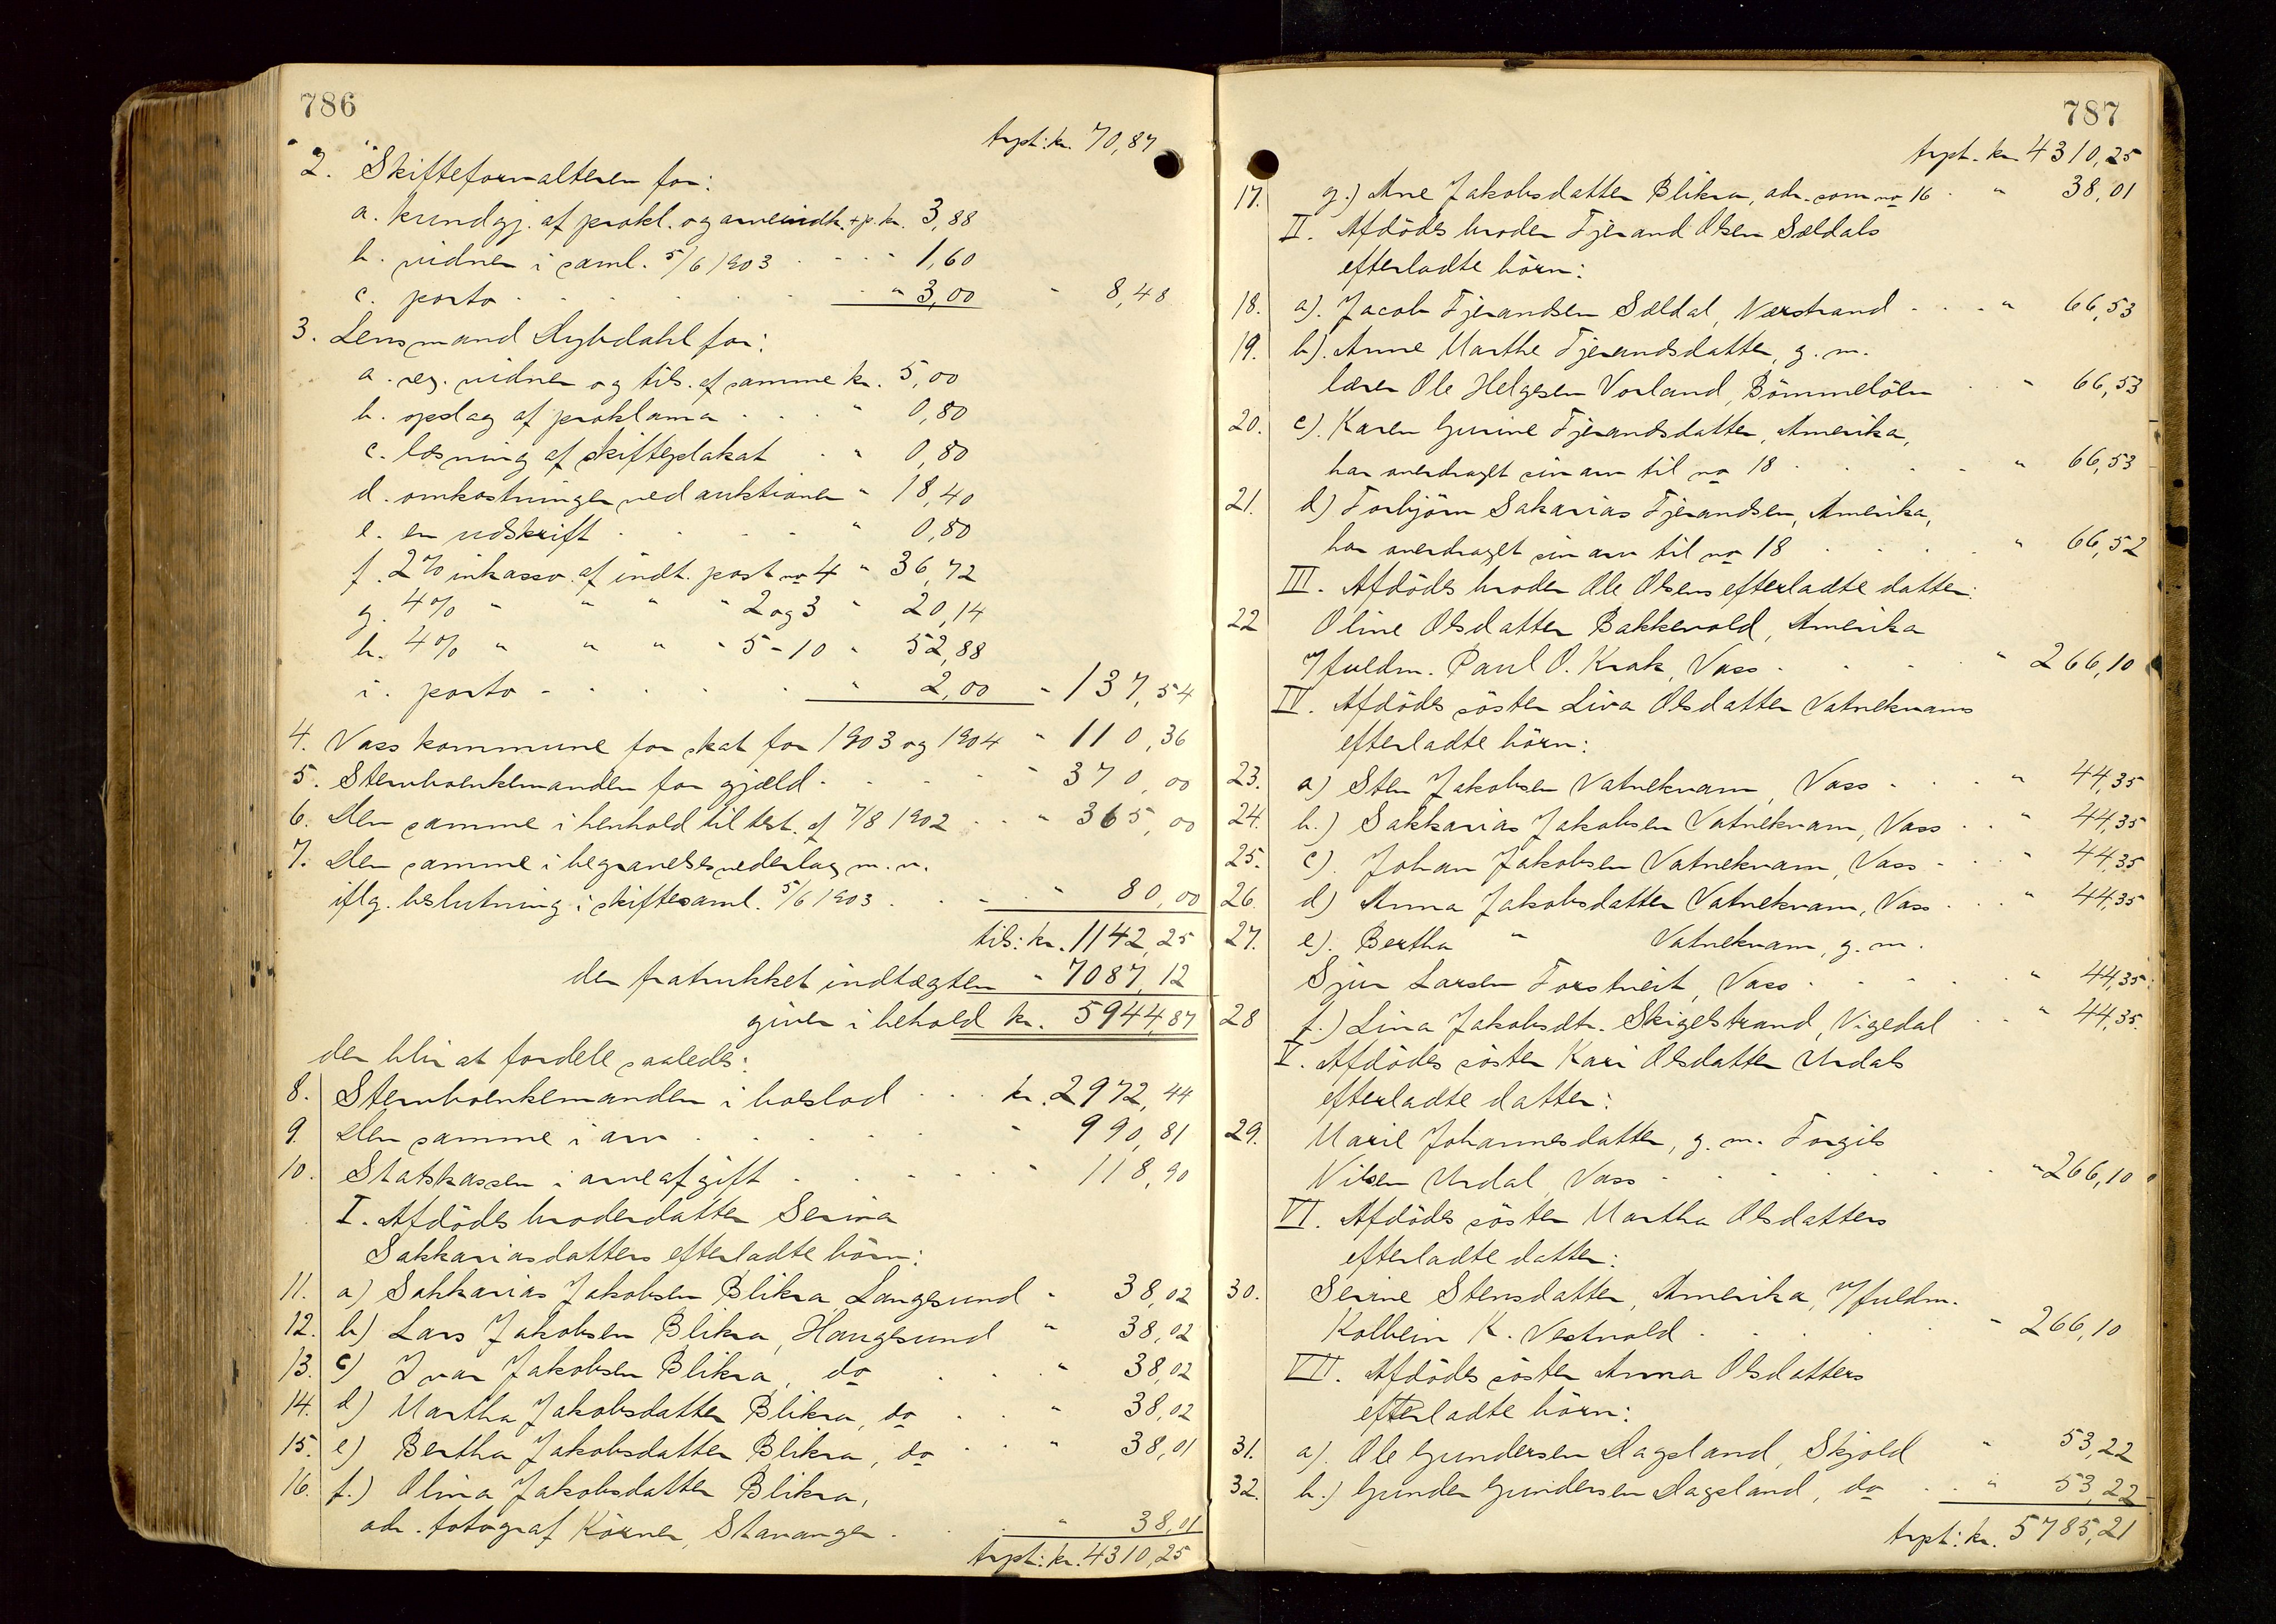 786
trpt: kr. 70,87
2. Skifteforvalteren for:
a. kundgj. af prokl. og arveindk. + p. kr. 3,88
b. vidner i saml. 5/6 1903 . . . . 1,60
c. porto . . . . . . . " 3,00 " 8,48
3. Lensmand Dybdahl for:
a. reg. vidner og tils. af samme kr. 5,00
b. opslag af proklama . . . " 0,80
c. læsning af skifteplakat . " 0,80
d. omkostninger ved auktionen " 18,40
e. en udskrift . . . . " 0,80
f. 2% inkasso af indt. post no 4 " 36,72
g. 4% " " " " 2 og 3 " 20,14
h. 4% " " " " 5-10 " 52,88
i. porto . . . . . " 2,00 " 137,54
4. Voss kommune for skat for 1903 og 1904 " 110,36
5. Stervboenkemanden for gjæld . . . . " 370,00
6. Den samme i henhold til test. af 7/8 1902 . . " 365,00
7. Den samme i begravelsesvederlag m. v.
iflg. beslutning i skiftesaml. 5/6 1903 . . . " 80,00
tils: kr. 1142,25
der fratrukket indtægten " 7087,12
giver i behold kr. 5944,87
der blir at fordele saaledes:
8. Stervboenkemanden i boslod . . . kr. 2972,44
9. Den samme i arv . . . . . " 990,81
10. Statskassen i arveafgift . . . . " 118,90
I. Afdödes broderdatter Serina
Sakkariasdatters efterladte börn:
11. a) Sakkarias Jakobsen Blikra, Langesund " 38,02
12. b) Lars Jakobsen Blikra, Haugesund " 38,02
13. c) Ivar Jakobsen Blikra, do . . . " 38,02
14. d) Martha Jakobsdatter Blikra, do . . " 38,02
15. e) Bertha Jakobsdatter Blikra, do . . " 38,01
16. f.) Olina Jakobsdatter Blikra,
adr. fotograf Körner, Stavanger . . " 38,01
trpt: kr. 4310,25
787
trpt. kr. 4310,25
17. g.) Ane Jakobsdatter Blikra, adr. som no 16 . " 38,01
II. Afdödes broder Tjerand Olsen Sældals
efterladte börn:
18. a). Jacob Tjerandsen Sældal, Nærstrand . . . " 66,53
19. b). Anne Marthe Tjerandsdatter, g. m.
lærer Ole Helgesen Vorland, Bömmelöen . " 66,53
20. c). Karen Gurine Tjerandsdatter, Amerika,
har overdraget sin arv til no 18 . . . . " 66,53
21. d) Torbjörn Sakarias Tjerandsen, Amerika,
har overdraget sin arv til no 18 . . . . " 66,52
III. Afdödes broder Ole Olsens efterladte datter:
22 Oline Olsdatter Bakkevold, Amerika
v/fuldm. Paul O. Krok, Voss . . . . " 266,10
IV. Afdödes söster Liva Olsdatter Vatnekvams
efterladte börn:
23. a) Sten Jakobsen Vatnekvam, Voss . . . " 44,35
24. b.) Sakkarias Jakobsen Vatnekvam, Voss . . " 44,35
25. c). Johan Jakobsen Vatnekvam, Voss . . . " 44,35
26. d) Anna Jakobsdatter Vatnekvam, Voss . . . " 44,35
27. e). Bertha " Vatnekvam, g. m.
Sjur Larsen Forstveit, Voss . . . . . " 44,35
28 f.) Lina Jakobsdtr. Skigelstrand, Vigedal . . " 44,35
V. Afdödes söster Kari Olsdatter Urdals
efterladte datter:
29. Marie Johannesdatter, g. m. Torgils
Nilsen Urdal, Voss . . . . . . " 266,10
VI. Afdödes söster Martha Olsdatters
efterladte datter:
30. Serine Stensdatter, Amerika, v/fuldm.
Kolbein K. Vestvold . . . . . " 266,10
VII. Afdödes söster Anna Olsdatters
efterladte börn:
31. a). Ole Gundersen Dagsland, Skjold " 53,22
32. b.) Gunder Gundersen Dagsland, do . . " 53,22
trpt: kr. 5785,21